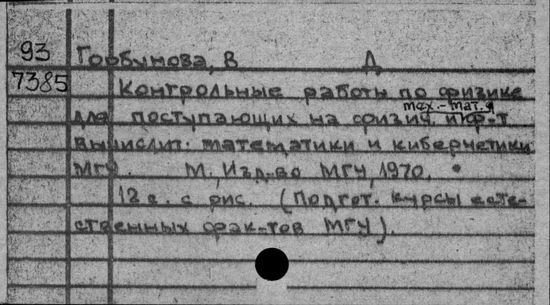 93 Горбунова, В Д
7385 Контрольные работы по физике
мех.-мат. и
для поступающих на физич. ф-т
вычислит. математики и кибернетики
МГУ. М., Изд-во МГУ, 1970.
12 с. с рис. (Подгот. курсы есте-
ственных фак-тов МГУ).